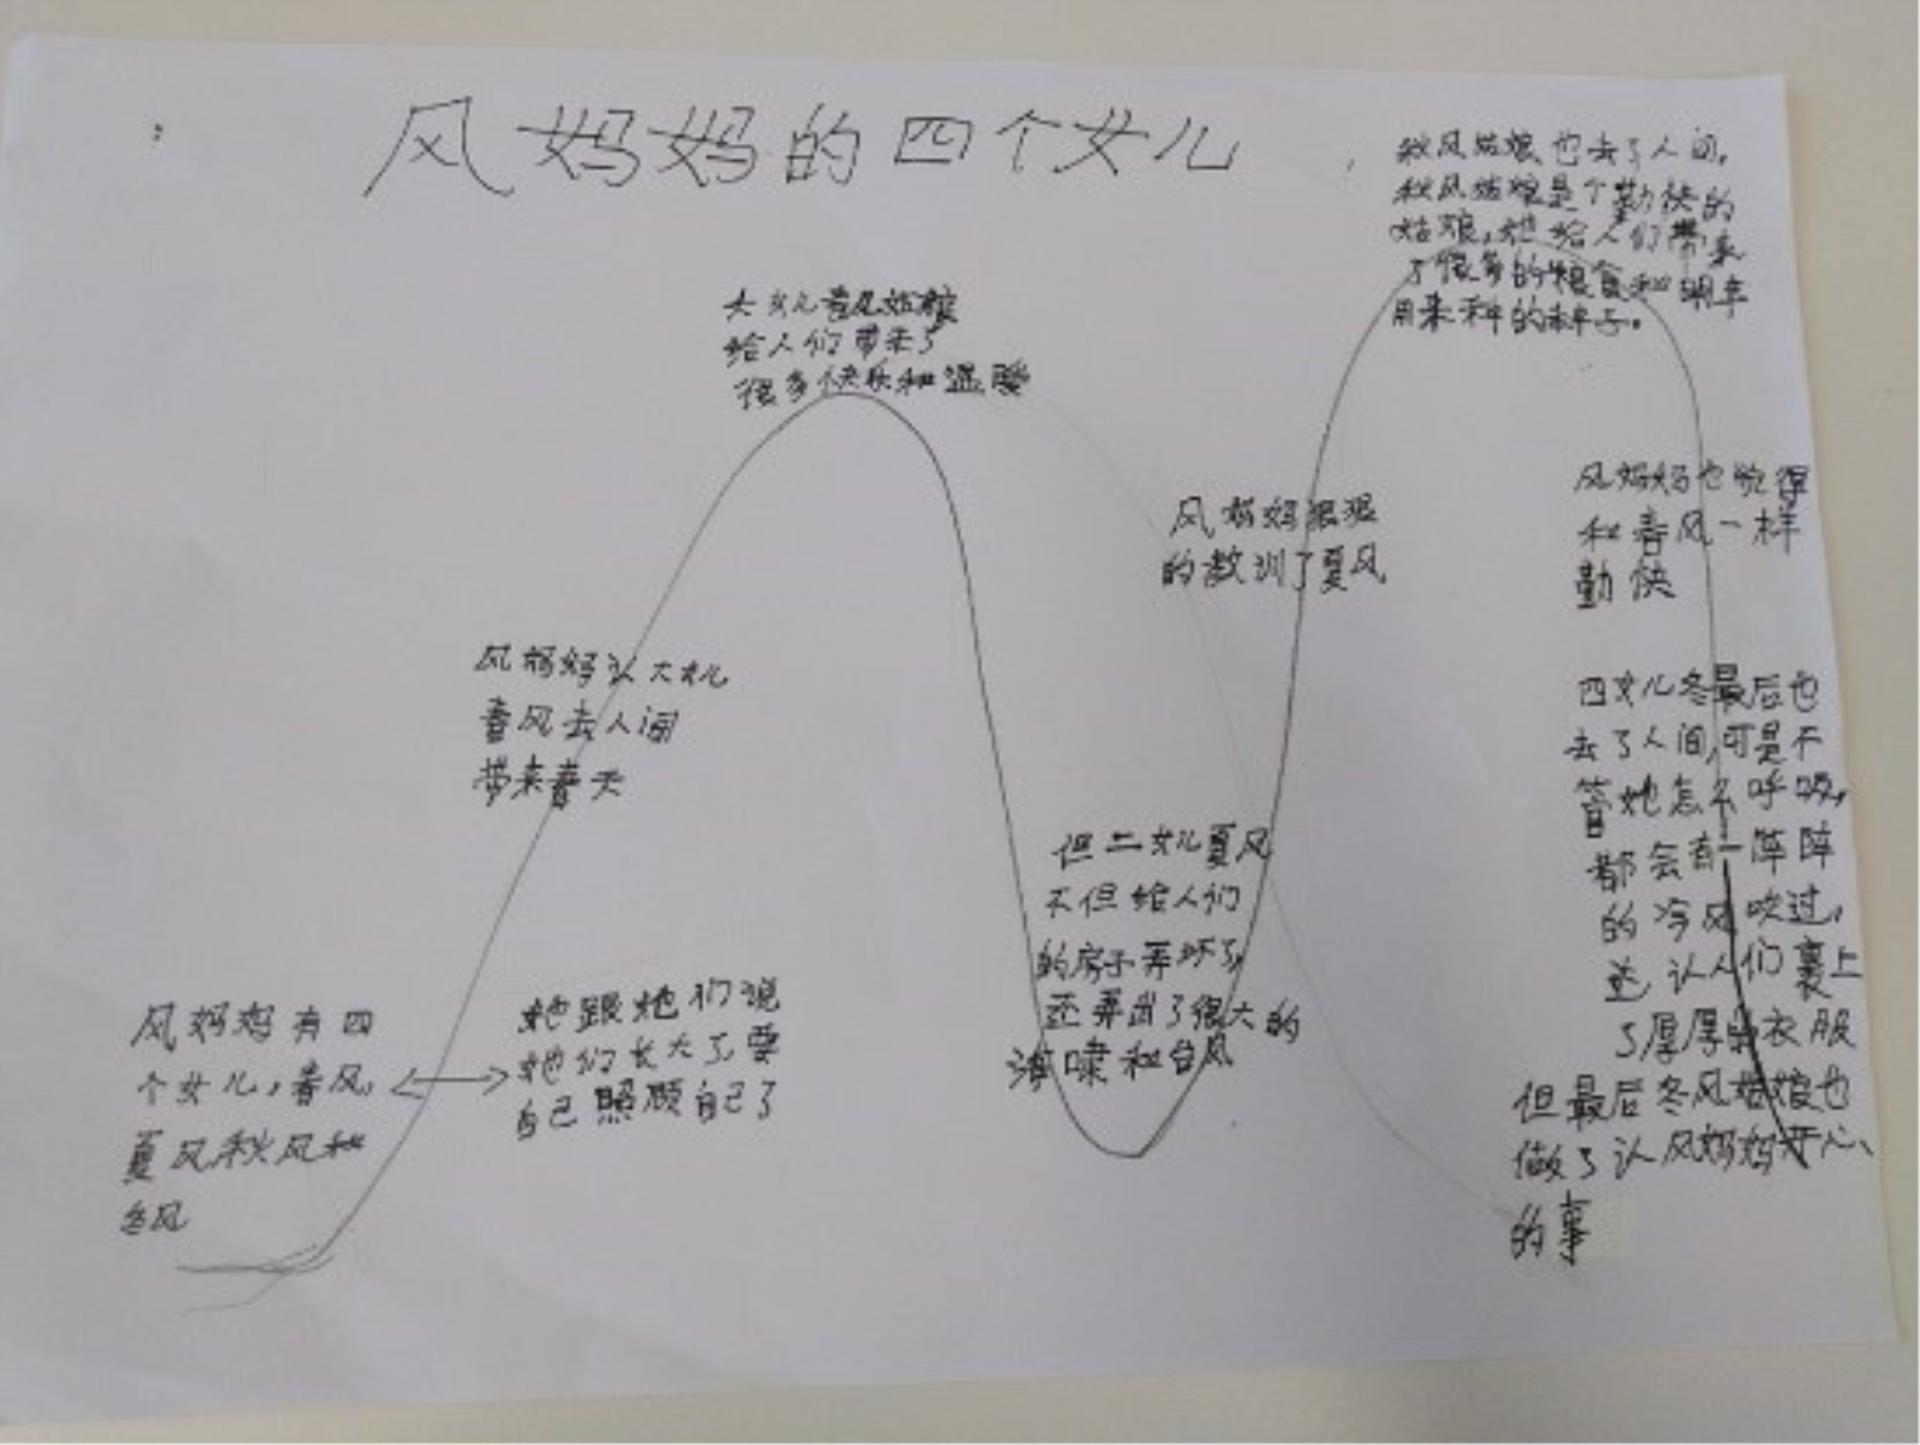 风妈妈的四个女儿
风妈妈有四
个女儿，春风，
夏风秋风和
冬风
她跟她们说
她们长大了，要
自己照顾自己了
风妈妈认大女儿
春风去人间
带来春天
大女儿春风姑娘
给人们带来了
很多快乐和温暖
但二女儿夏风
不但给人们
的房子弄坏了，
还弄出了很大的
海啸和台风
风妈妈狠狠
的教训了夏风
秋风姑娘也去了人间，
秋风姑娘是个勤快的
姑娘，她给人们带来
了很多的粮食和明年
用来种的种子。
风妈妈也觉得
和春风一样
勤快
四女儿冬最后也
去了人间，可是不
管她怎么呼吸，
都会有一阵阵
的冷风吹过，
还认人们裹上
了厚厚的衣服
但最后冬风姑娘也
做了认风妈妈开心
的事